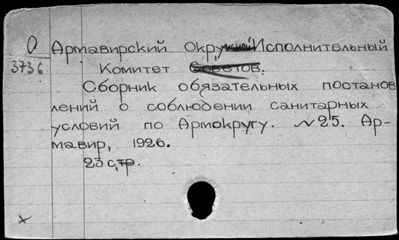 О
3736
Армавирский Окружной Исполнительный
Комитет Советов.
Сборник обязательных постанов
лений о соблюдении санитарных
условий по Армокругу. №25. Ар-
мавир, 1926.
23 стр.
x